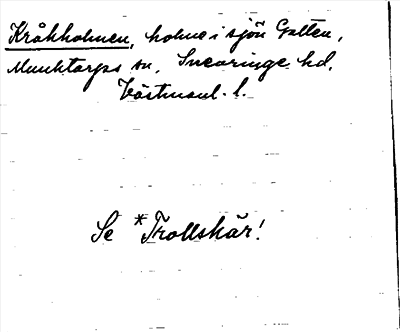 Kråkholmen, holme i sjön Gatten,
Munktorps sn, Snevringe hd,
Västmanl. l.
Se *Trollskär!